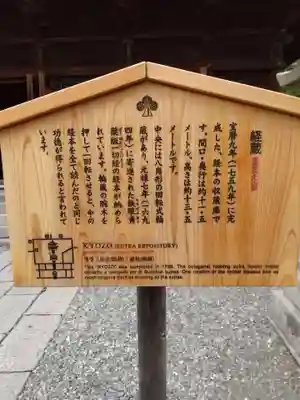 経蔵
宝暦九年(一七五九年)に完
成した、経本の収蔵庫で
す。間口・奥行は約十一・五
メートル、高さは約十三・五
メートルです。
中央には八角形の回転式輪
蔵があり、元禄七年(一六九
四年)に寄進された鉄眼黄
檗版一切経の経本が納めら
れています。輪蔵の腕木を
押して一回転させると、中の
経本を全て読んだのと同じ
功徳が得られると言われて
います。
KYOZO (SUTRA REPOSITORY)
This "KYOZO" was completed in 1759. The octagonal rotating